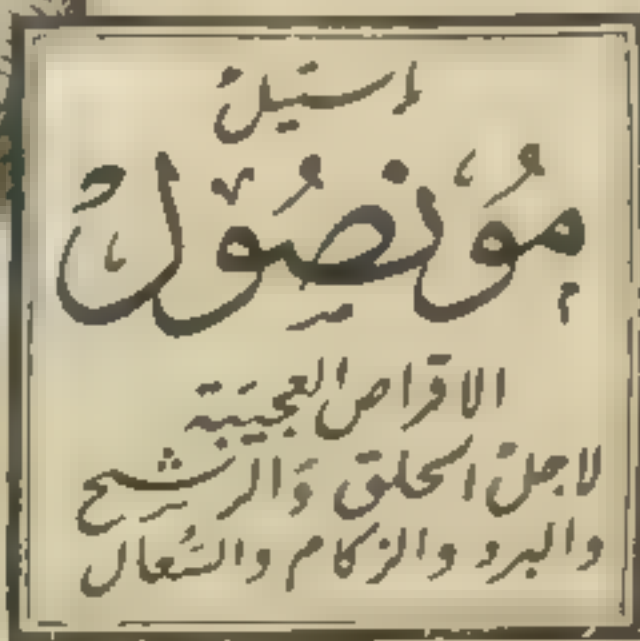 إستيل
مُونصُول
الاقراص العجيبة
لاجل الحلق والرشح
والبرد والزكام والسُعال